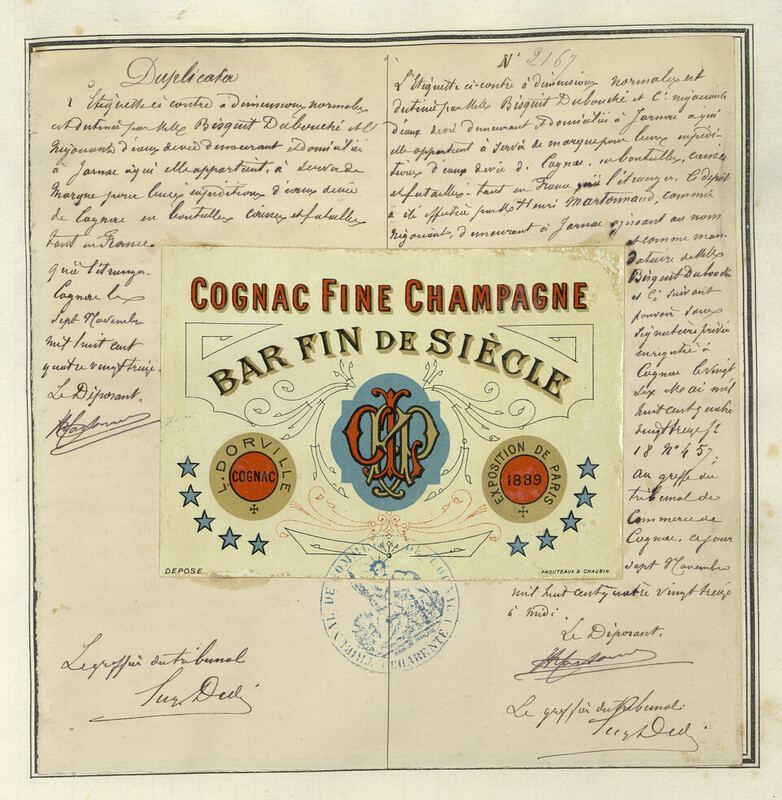 Duplicata
L'Etiquette ci contre à dimensions normales
est destinée par M.M. Bisquit Dubouché et Cie
Négociants d'eaux de vie demeurant et domiciliés
à Jarnac à qui elle appartient, à servir de
Marque pour leurs expéditions d'eaux de vie
de Cognac en bouteilles caisses et futailles
tant en France
qu'à l'étranger.
Cognac le
sept Novembre
mil huit cent
quatre vingt treize.
Le Déposant.
Le greffier du tribunal
N° 2167
L'Etiquette ci-contre à dimensions normales est
destinée par M.M. Bisquit Dubouché et Cie négociants
d'eaux de vie demeurant et domiciliés à Jarnac à qui
elle appartient à servir de marque pour leurs expédi-
tions d'eaux de vie de Cognac, en bouteilles, caisses
et futailles tant en France qu'à l'étranger. Ce dépôt
a été effectué par Mr Henri Martonnaud, commis
négociant, demeurant à Jarnac agissant au nom
et comme man-
dataire de M.M.
Bisquit Dubouché
et Cie suivant
pouvoir sous
signature privée
enregistré à
Cognac le vingt
six Mai mil
huit cent quatre
vingt treize f°
18 N° 457.
Au greffe du
tribunal de
Commerce de
Cognac, ce jour
sept Novembre
mil huit cent quatre vingt treize
à midi.
Le Déposant.
Le greffier du tribunal
COGNAC FINE CHAMPAGNE
BAR FIN DE SIÈCLE
L. DORVILLE
COGNAC
EXPOSITION DE PARIS
1889
DEPOSE
PROUTEAUX & CHAUBIN
TRIBUNAL DE COMMERCE DE COGNAC (CHARENTE)